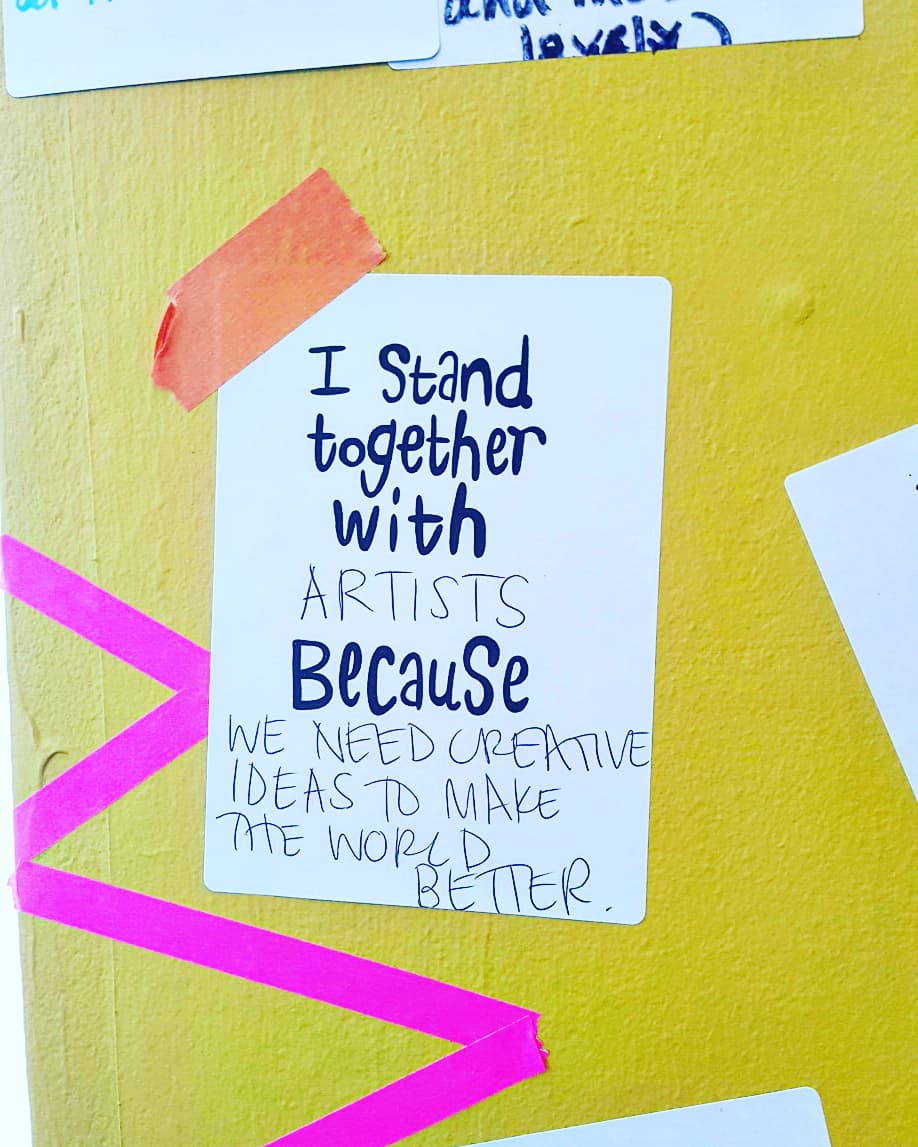 lovely)
I Stand
together
with
ARTISTS
Because
WE NEED CREATIVE
IDEAS TO MAKE
THE WORLD
BETTER.